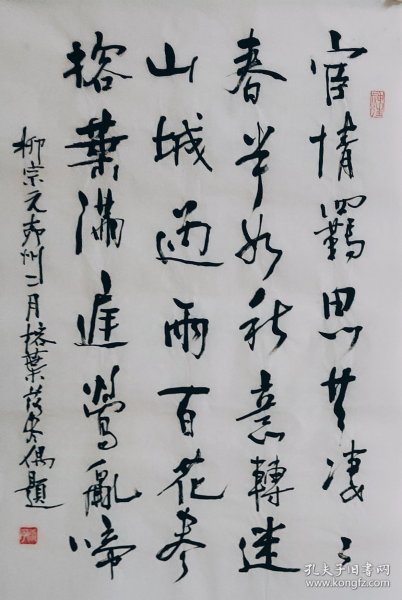 宦情羈思共凄々
春半如秋意轉迷
山城過雨百花尽
榕葉滿庭鶯亂啼
柳宗元柳州二月榕葉落尽偶題
孔夫子旧书网
www.kongfz.com